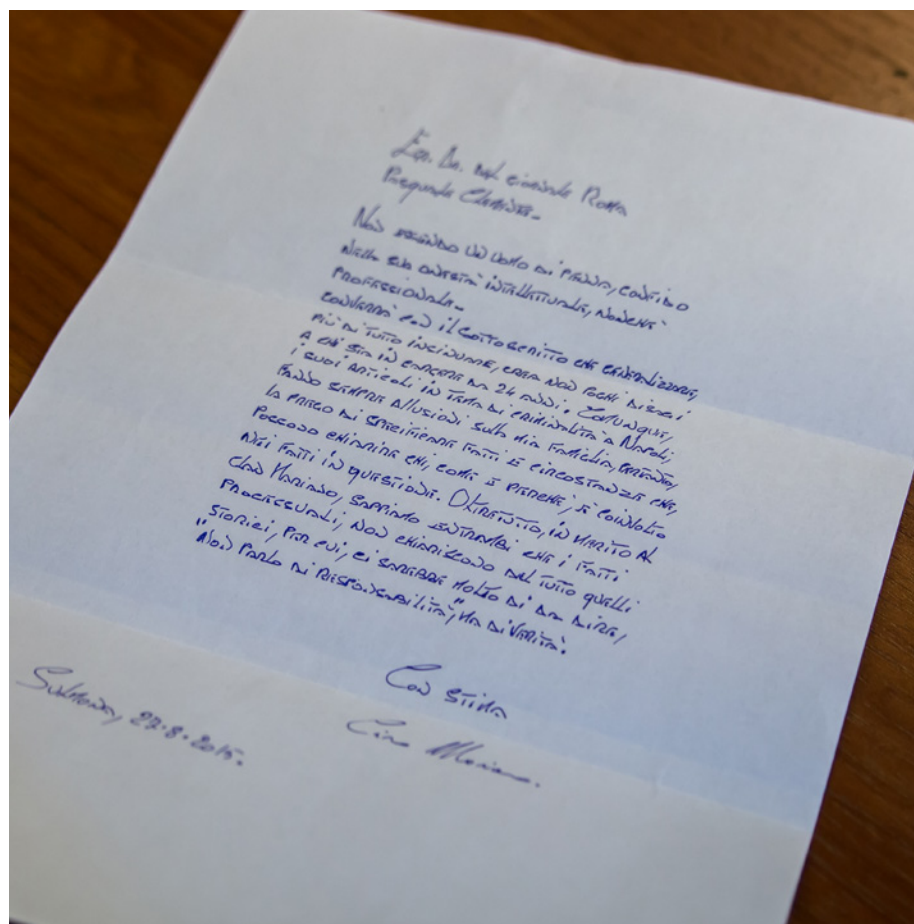 Egr. Dr. del giornale Roma
Pasquale Clemente.
Non essendo un uomo di penna, confido
nella sua onestà intellettuale, nonché
professionale.
Converrà con il sottoscritto che generalizzare,
più di tutto insinuare, crea non pochi disagi
a chi sta in carcere da 24 anni. Comunque,
i suoi articoli in tema di criminalità a Napoli,
fanno sempre allusioni sulla mia famiglia, pertanto,
la prego di specificare fatti e circostanze che,
possono chiarire chi, come e perché, è coinvolto
nei fatti in questione. Oltretutto, in merito al
clan Mariano, sappiamo entrambi che i fatti
processuali, non chiariscono del tutto quelli
storici, per cui, ci sarebbe molto di da dire,
"non parlo di responsabilità", ma di verità.
Con stima
Ciro Mariano.
Sulmona, 27.8.2015.